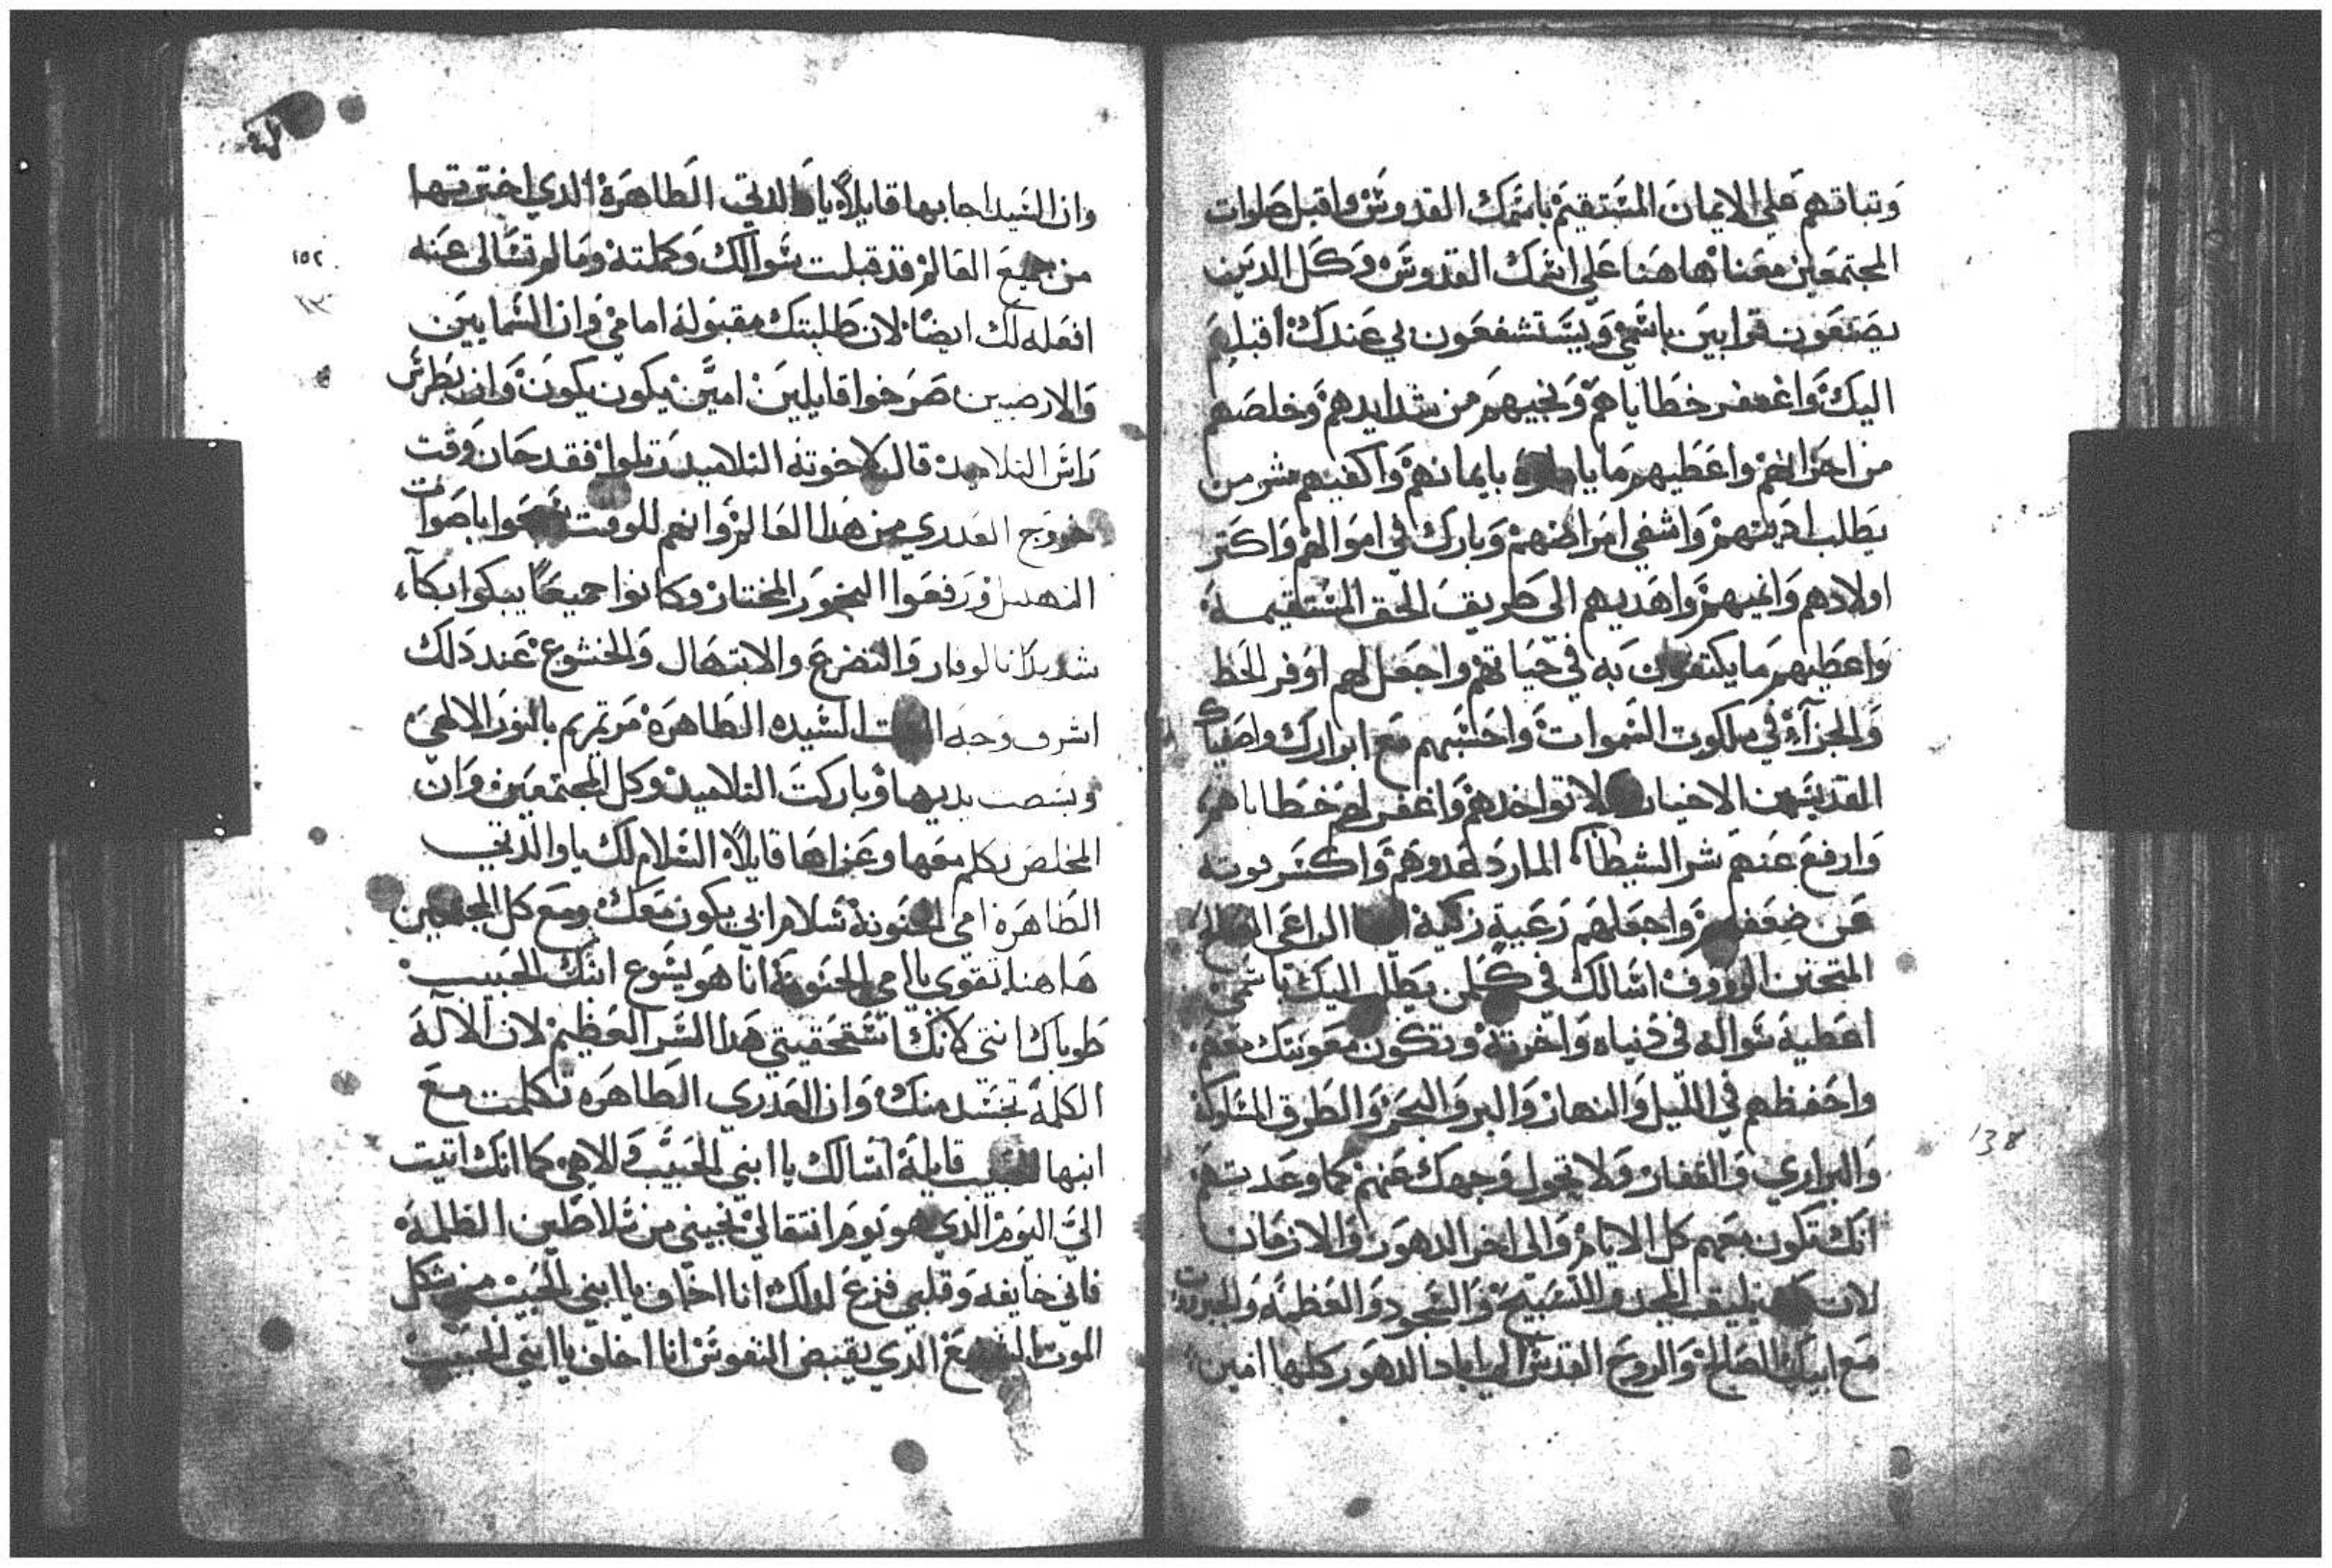 وتباتهم على الايمان المستقيم باسمك القدوس واقبل صلوات
المجتمعين معنا هاهنا على اسمك القدوس وكل الدين
يصنعون قرابين باسمي ويستشفعون بي عندك اقبلهم
اليك واغفر خطاياهم ونجيهم من شدايدهم وخلصهم
من احزانهم واعطيهم ما بايمانهم واكفيهم شر من
يطلب اديتهم واشفي امراضهم وبارك في اموالهم واكتر
اولادهم وانميهم واهديهم الى طريق الحق المستقيمة
واعطيهم ما يكتفون به في حياتهم واجعل لهم اوفر الحظ
والجزآء في ملكوت السموات واحسبهم مع ابرارك واصفياك
القديسين الاخيار لا تواخدهم واغفر لهم خطاياهم
وارفع عنهم شر الشيطان المارد عدوهم واكسر قوته
عن ضعفهم واجعلهم رعية زكية الراعي
المتحنن الرووف اسالك في كلمن يطلب اليك باسمي
اعطيه سواله في دنياه واخرته وتكون معونتك معهم
واحفظهم في الليل والنهار والبر والبحر والطرق المسلوكة
والبراري والقفار ولا تحول وجهك عنهم كما وعدتهم
انك تكون معهم كل الايام والى اخر الدهور والازمان
لان يليق المجد والتسبيح والسجود والعظمة والجبروت
مع ابيك الصالح والروح القدس الى اباد الدهور كلها امين
138
وان السيد اجابها قايلاً يا والدتي الطاهرة الدي اخترتها
من جميع العالم قد قبلت سوالك وكملته وما لم تسالى عنه
١٥٢
افعله لك ايضاً لان طلبتك مقبوله امامي وان السمايين
والارضيين صرخوا قايلين امين يكون يكون وان بطرس
راس التلاميد قال لاخوته التلاميد رتلوا فقد حان وقت
خروج العدري من هدا العالم وانهم للوقت سبحوا باصوات
التهليل ورفعوا البخور المختار وكانوا جميعاً يبكوا بكآء
شديداً بالوقار والتضرع والابتهال والخشوع عند دلك
اشرق وجه الست السيده الطاهرة مرتمريم بالنور الالهي
وبسطت يديها وباركت التلاميد وكل المجتمعين وان
المخلص تكلم معها وعزاها قايلاً السلام لك يا والدتي
الطاهرة امي الحنونة سلام ابي يكون معك ومع كل المجتمعين
هاهنا تقوي يا امي الحنونة انا هو يسوع ابنك الحبيب
طوباك انتي لانك استحقيتي هدا السر العظيم لان الآله
الكلمة تجسد منك وان العدري الطاهره تكلمت مع
ابنها الحبيب قايلة اسالك يا ابني الحبيب والاهي كما انك اتيت
الى اليوم الدي هو يوم انتقالي نجيني من سلاطين الظلمة
فاني خايفه وقلبي فزع لدلك انا اخاف يا ابني الحبيب من شكل
الموت الدي يقبض النفوس انا اخاف يا ابني الحبيب